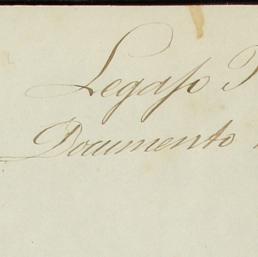 Legaſo
Documento